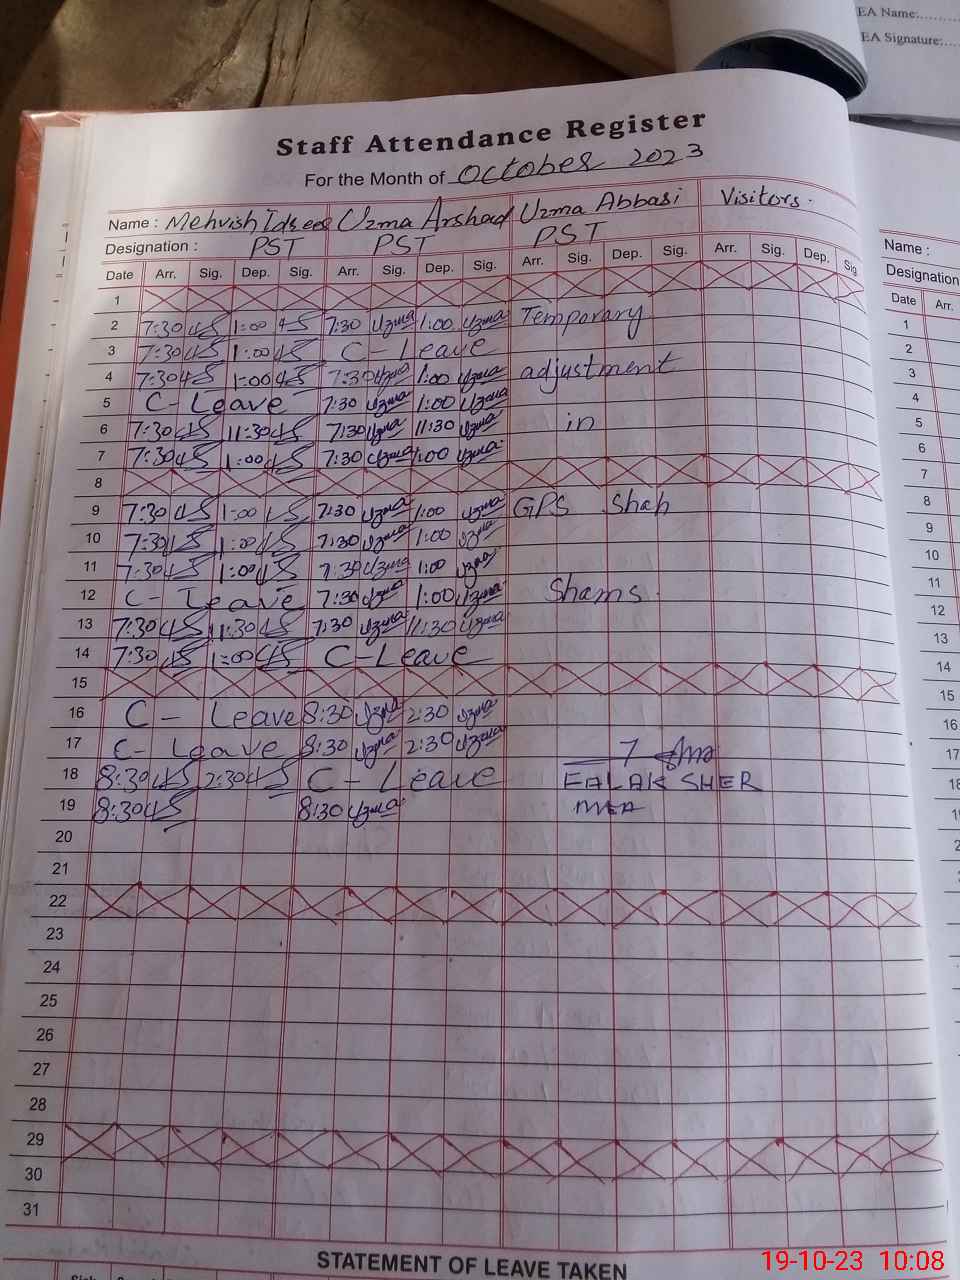 EA Name:.........
EA Signature:....
Staff Attendance Register
For the Month of October 2023
Name : Mehvish Idsees Uzma Arshad Uzma Abbasi Visitors.
Designation : PST PST PST
Date Arr. Sig. Dep. Sig. Arr. Sig. Dep. Sig. Arr. Sig. Dep. Sig. Arr. Sig. Dep. Sig.
1
2 7:30 1:00 7:30 Uzma 1:00 Uzma Temporary
3 7:30 1:00 C-Leave
4 7:30 1:00 7:30 Uzma 1:00 Uzma adjustment
5 C-Leave 7:30 Uzma 1:00 Uzma
6 7:30 11:30 7:30 Uzma 11:30 Uzma in
7 7:30 1:00 7:30 Uzma 1:00 Uzma
8
9 7:30 1:00 7:30 Uzma 1:00 Uzma GPS Shah
10 7:30 1:00 7:30 Uzma 1:00 Uzma
11 7:30 1:00 7:30 Uzma 1:00 Uzma
12 C-Leave 7:30 Uzma 1:00 Uzma Shams.
13 7:30 11:30 7:30 Uzma 11:30 Uzma
14 7:30 1:00 C-Leave
15
16 C-Leave 8:30 Uzma 2:30 Uzma
17 C-Leave 8:30 Uzma 2:30 Uzma
18 8:30 2:30 C-Leave FALAK SHER
19 8:30 8:30 Uzma MEA
20
21
22
23
24
25
26
27
28
29
30
31
STATEMENT OF LEAVE TAKEN
Name :
Designation
Date Arr.
1
2
3
4
5
6
7
8
9
10
11
12
13
14
15
16
17
19-10-23 10:08